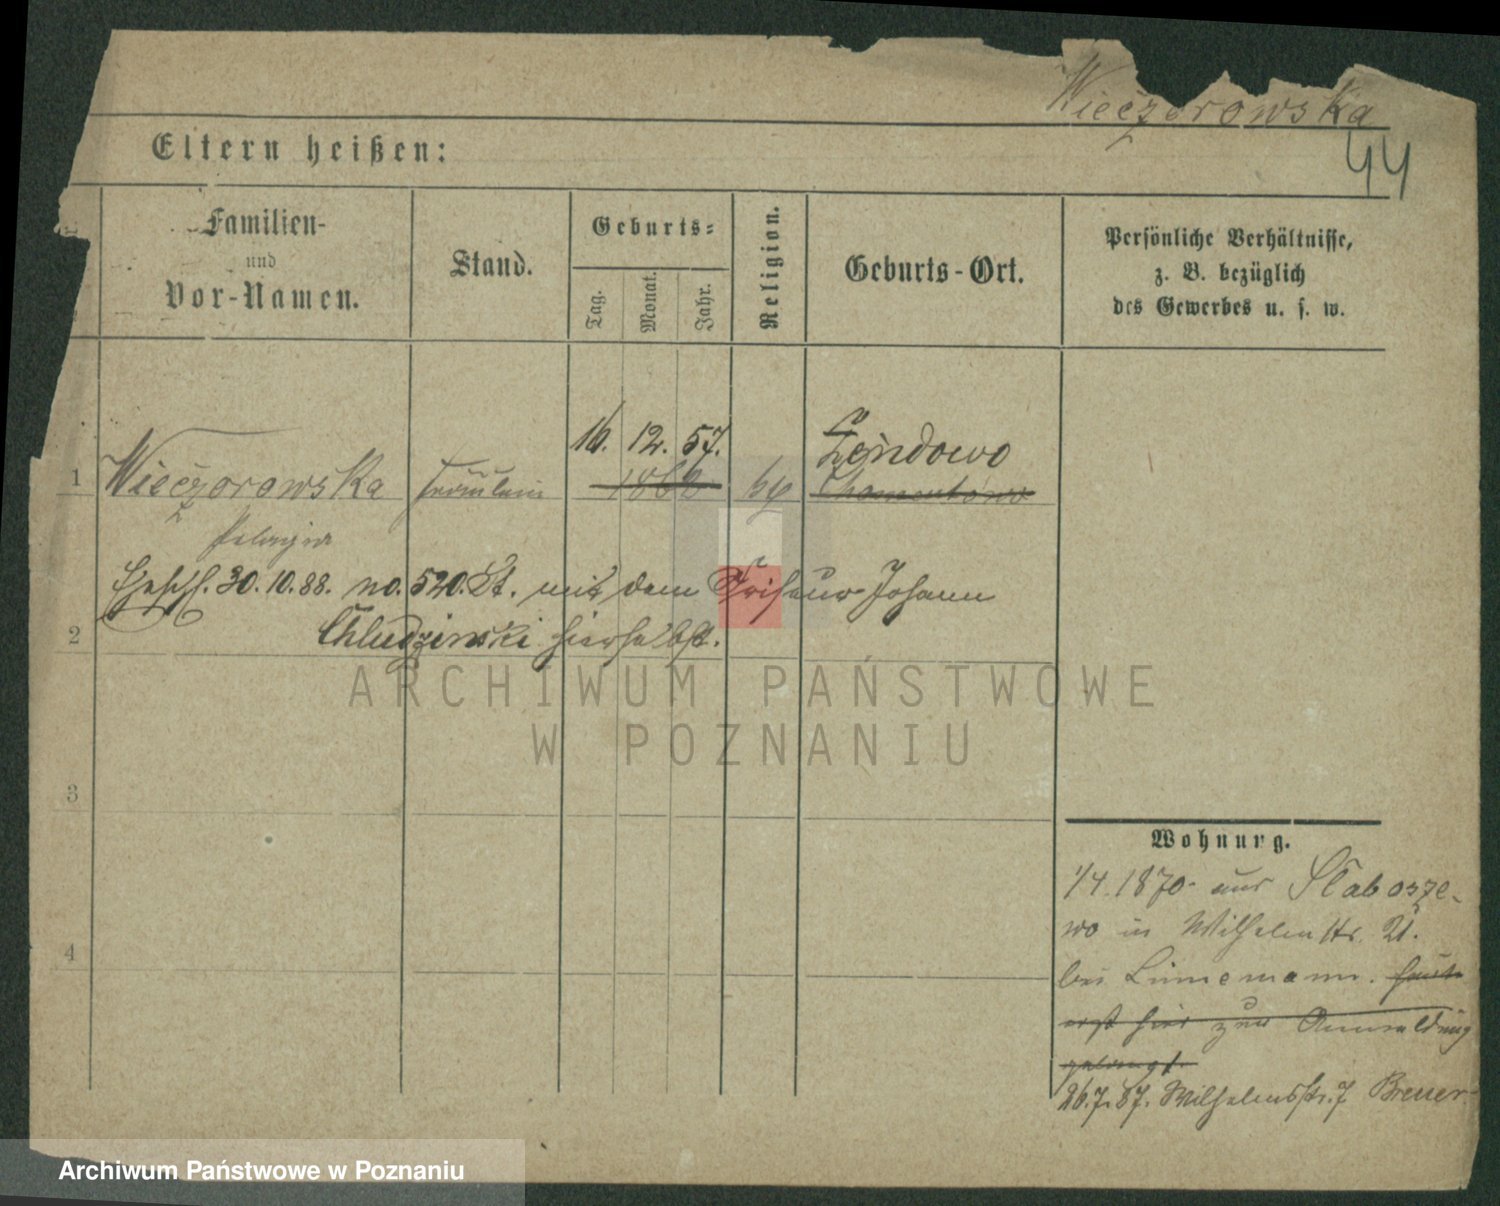 Wieczorowska
44
Eltern heißen:
Familien-
und
Vor-Namen.
Stand.
Geburts-
Tag.
Monat.
Jahr.
Religion.
Geburts-Ort.
Persönliche Verhältnisse,
z. B. bezüglich
des Gewerbes u. s. w.
16. 12. 57. Zendowo
1 Wieczorowska Fräulein 1862
Pelagia
30.10.88. no. 520. St. mit dem Friseur Johann
2 Chludzinski hierselbst.
ARCHIWUM PAŃSTWOWE
W POZNANIU
3
4
Wohnung.
1/4. 1870 aus Slabosze-
wo in Wilhelmstr. 21.
bei Linnemann. heute
erst hier zur Anmeldung
gelangt.
26.7.87. Wilhelmsstr. 7 Breuer
Archiwum Państwowe w Poznaniu